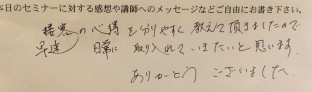 本日のセミナーに対する感想や講師へのメッセージなどご自由にお書き下さい。
接客の心得を分りやすく教えて頂きましたので
早速 日常に取り入れていきたいと思います。
ありがとうございました。